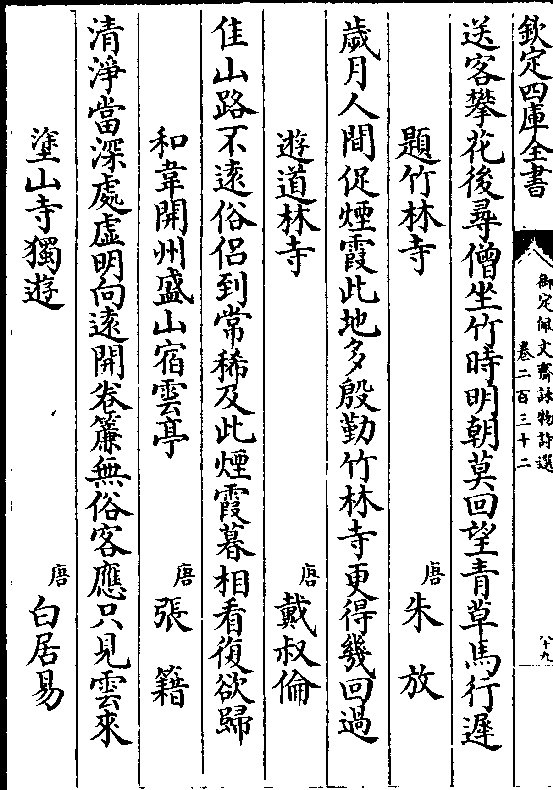 欽定四庫全書
御定佩文齋詠物詩選
卷二百三十二
十九
送客攀花後尋僧坐竹時明朝莫回望青草馬行遲
題竹林寺
唐 朱放
歲月人間促煙霞此地多殷勤竹林寺更得幾回過
遊道林寺
唐 戴叔倫
佳山路不遠俗侣到常稀及此煙霞暮相看復欲歸
和韋開州盛山宿雲亭
唐 張籍
清淨當深處虛明向遠開卷簾無俗客應只見雲來
塗山寺獨遊
唐 白居易